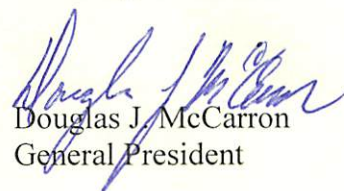 Douglas J. McCarron
Douglas J. McCarron
General President